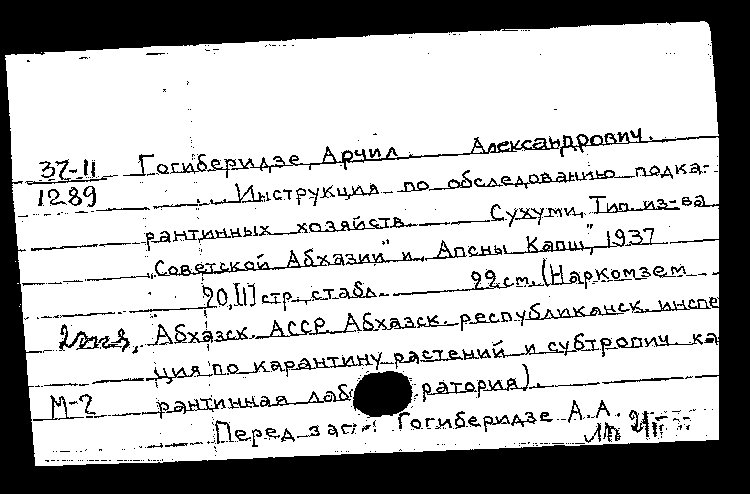 37-11 Гогиберидзе, Арчил Александрович.
1289 Инструкция по обследованию подка-
рантинных хозяйств Сухуми, Тип. из-ва
„Советской Абхазии" и „Апсны Капш", 1937
20, [1] стр. с табл. 22 см. (Наркомзем
2 экз. Абхазск. АССР. Абхазск. республиканск. инспек
ция по карантину растений и субтропич. ка
М-2 рантинная лаборатория).
Перед загл.: Гогиберидзе А.А.